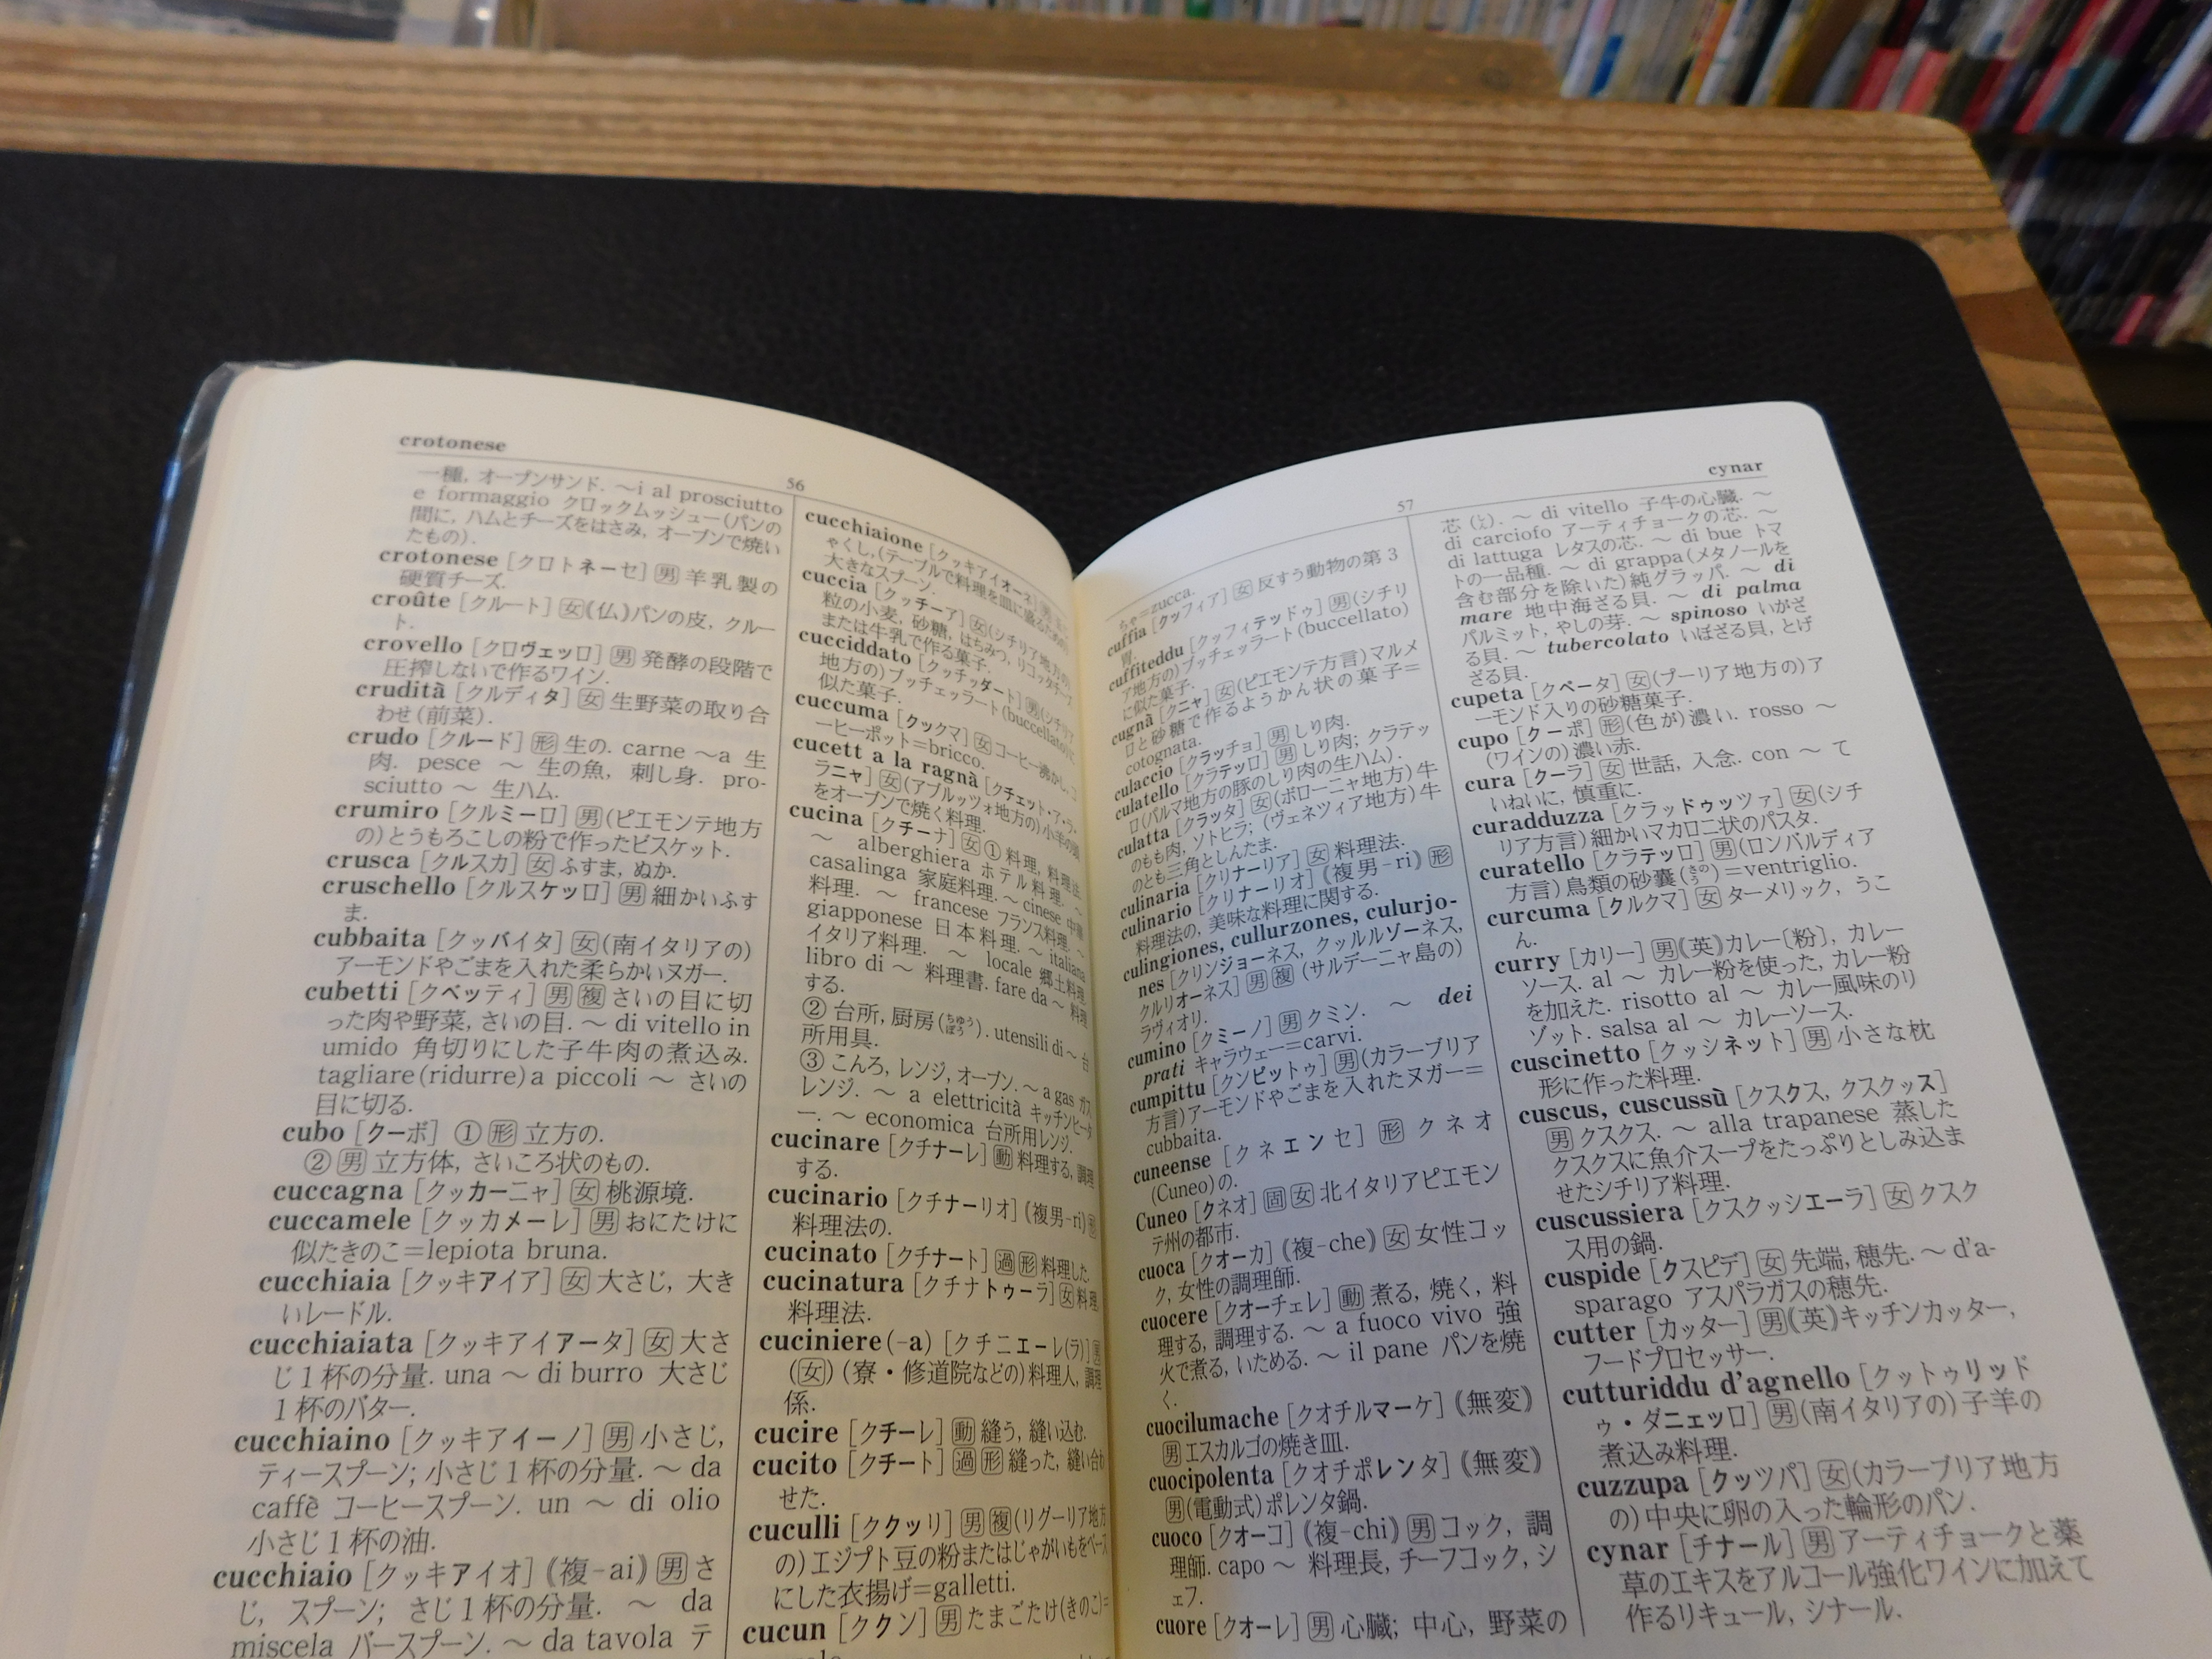 crotonese
56
一種, オーブンサンド. ～i al prosciutto
e formaggio クロックムッシュー(パンの
間に, ハムとチーズをはさみ, オーブンで焼い
たもの).
crotonese [クロトネーセ] 男 羊乳製の
硬質チーズ.
croûte [クルート] 女 《仏》パンの皮, クルー
ト.
crovello [クロヴェッロ] 男 発酵の段階で
圧搾しないで作るワイン.
crudità [クルディタ] 女 生野菜の取り合
わせ(前菜).
crudo [クルード] 形 生の. carne ～a 生
肉. pesce ～ 生の魚, 刺し身. pro-
sciutto ～ 生ハム.
crumiro [クルミーロ] 男 (ピエモンテ地方
の)とうもろこしの粉で作ったビスケット.
crusca [クルスカ] 女 ふすま, ぬか.
cruschello [クルスケッロ] 男 細かいふす
ま.
cubbaita [クッバイタ] 女 (南イタリアの)
アーモンドやごまを入れた柔らかいヌガー.
cubetti [クベッティ] 男 複 さいの目に切
った肉や野菜, さいの目. ～ di vitello in
umido 角切りにした子牛肉の煮込み.
tagliare(ridurre) a piccoli ～ さいの
目に切る.
cubo [クーボ] ① 形 立方の.
② 男 立方体, さいころ状のもの.
cuccagna [クッカーニャ] 女 桃源境.
cuccamele [クッカメーレ] 男 おにたけに
似たきのこ=lepiota bruna.
cucchiaia [クッキアイア] 女 大さじ, 大き
いレードル.
cucchiaiata [クッキアイアータ] 女 大さ
じ1杯の分量. una ～ di burro 大さじ
1杯のバター.
cucchiaino [クッキアイーノ] 男 小さじ,
ティースプーン; 小さじ1杯の分量. ～ da
caffè コーヒースプーン. un ～ di olio
小さじ1杯の油.
cucchiaio [クッキアイオ] 《複-ai》 男 さ
じ, スプーン; さじ1杯の分量. ～ da
miscela バースプーン. ～ da tavola テ
cucchiaione [クッキアイオーネ] 男
ゃくし, (テーブルで料理を皿に盛るための)
大きなスプーン.
cuccia [クッチーア] 女 (シチリア地方の)
粒の小麦, 砂糖, はちみつ, リコッタチーズ
または牛乳で作る菓子.
cucciddato [クッチッダート] 男 (シチリア
地方の)ブッチェッラート(buccellato)に
似た菓子.
cuccuma [クックマ] 女 コーヒー沸かし, コ
ーヒーポット=bricco.
cucett a la ragnà [クチェット・ア・ラ・
ラニャ] 女 (アブルッツォ地方の)小羊の頭
をオーブンで焼く料理.
cucina [クチーナ] 女 ① 料理, 料理法.
～ alberghiera ホテル料理. ～
casalinga 家庭料理. ～ cinese 中華
料理. ～ francese フランス料理. ～
giapponese 日本料理. ～ italiana
イタリア料理. ～ locale 郷土料理.
libro di ～ 料理書. fare da ～ 料理
する.
② 台所, 厨房(ちゅうぼう). utensili di ～ 台
所用具.
③ こんろ, レンジ, オーブン. ～ a gas ガス
レンジ. ～ a elettricità キッチンヒータ
ー. ～ economica 台所用レンジ.
cucinare [クチナーレ] 動 料理する, 調理
する.
cucinario [クチナーリオ] 《複男-ri》 形
料理法の.
cucinato [クチナート] 過 形 料理した.
cucinatura [クチナトゥーラ] 女 料理,
料理法.
cuciniere(-a) [クチニエーレ(ラ)] 男
(女) (寮・修道院などの)料理人, 調理
係.
cucire [クチーレ] 動 縫う, 縫い込む.
cucito [クチート] 過 形 縫った, 縫い合わ
せた.
cuculli [ククッリ] 男 複 (リグーリア地方
の)エジプト豆の粉またはじゃがいもをベース
にした衣揚げ=galletti.
cucun [ククン] 男 たまごたけ(きのこ)=
57
cynar
ちゃ=zucca.
cuffia [クッフィア] 女 反すう動物の第3
胃.
cuffiteddu [クッフィテッドゥ] 男 (シチリ
ア地方の)ブッチェッラート(buccellato)
に似た菓子.
cugnà [クニャ] 女 (ピエモンテ方言)マルメ
ロと砂糖で作るようかん状の菓子=
cotognata.
culaccio [クラッチョ] 男 しり肉.
culatello [クラテッロ] 男 しり肉; クラテッ
ロ(パルマ地方の豚のしり肉の生ハム).
culatta [クラッタ] 女 (ボローニャ地方)牛
のもも肉, ソトヒラ; (ヴェネツィア地方)牛
のとも三角としんたま.
culinaria [クリナーリア] 女 料理法.
culinario [クリナーリオ] 《複男-ri》 形
料理法の, 美味な料理に関する.
culingiones, cullurzones, culurjo-
nes [クリンジョーネス, クッルルゾーネス,
クルリオーネス] 男 複 (サルデーニャ島の)
ラヴィオリ.
cumino [クミーノ] 男 クミン. ～ dei
prati キャラウェー=carvi.
cumpittu [クンピットゥ] 男 (カラーブリア
方言)アーモンドやごまを入れたヌガー=
cubbaita.
cuneense [クネエンセ] 形 クネオ
(Cuneo)の.
Cuneo [クネオ] 固 女 北イタリアピエモン
テ州の都市.
cuoca [クオーカ] 《複-che》 女 女性コッ
ク, 女性の調理師.
cuocere [クオーチェレ] 動 煮る, 焼く, 料
理する, 調理する. ～ a fuoco vivo 強
火で煮る, いためる. ～ il pane パンを焼
く.
cuocilumache [クオチルマーケ] 《無変》
男 エスカルゴの焼き皿.
cuocipolenta [クオチポレンタ] 《無変》
男 (電動式)ポレンタ鍋.
cuoco [クオーコ] 《複-chi》 男 コック, 調
理師. capo ～ 料理長, チーフコック, シ
ェフ.
cuore [クオーレ] 男 心臓; 中心, 野菜の
芯(しん). ～ di vitello 子牛の心臓. ～
di carciofo アーティチョークの芯. ～
di lattuga レタスの芯. ～ di bue トマ
トの一品種. ～ di grappa(メタノールを
含む部分を除いた)純グラッパ. ～ di
mare 地中海ざる貝. ～ di palma
パルミット, やしの芽. ～ spinoso いがざ
る貝. ～ tubercolato いぼざる貝, とげ
ざる貝.
cupeta [クペータ] 女 (プーリア地方の)ア
ーモンド入りの砂糖菓子.
cupo [クーポ] 形 (色が)濃い. rosso ～
(ワインの)濃い赤.
cura [クーラ] 女 世話, 入念. con ～ て
いねいに, 慎重に.
curadduzza [クラッドゥッツァ] 女 (シチ
リア方言)細かいマカロニ状のパスタ.
curatello [クラテッロ] 男 (ロンバルディア
方言)鳥類の砂嚢(きのう)=ventriglio.
curcuma [クルクマ] 女 ターメリック, うこ
ん.
curry [カリー] 男 《英》カレー〔粉〕, カレー
ソース. al ～ カレー粉を使った, カレー粉
を加えた. risotto al ～ カレー風味のリ
ゾット. salsa al ～ カレーソース.
cuscinetto [クッシネット] 男 小さな枕
形に作った料理.
cuscus, cuscussù [クスクス, クスクッス]
男 クスクス. ～ alla trapanese 蒸した
クスクスに魚介スープをたっぷりとしみ込ま
せたシチリア料理.
cuscussiera [クスクッシエーラ] 女 クスク
ス用の鍋.
cuspide [クスピデ] 女 先端, 穂先. ～ d'a-
sparago アスパラガスの穂先.
cutter [カッター] 男 《英》キッチンカッター,
フードプロセッサー.
cutturiddu d'agnello [クットゥリッド
ゥ・ダニェッロ] 男 (南イタリアの)子羊の
煮込み料理.
cuzzupa [クッツパ] 女 (カラーブリア地方
の)中央に卵の入った輪形のパン.
cynar [チナール] 男 アーティチョークと薬
草のエキスをアルコール強化ワインに加えて
作るリキュール, シナール.